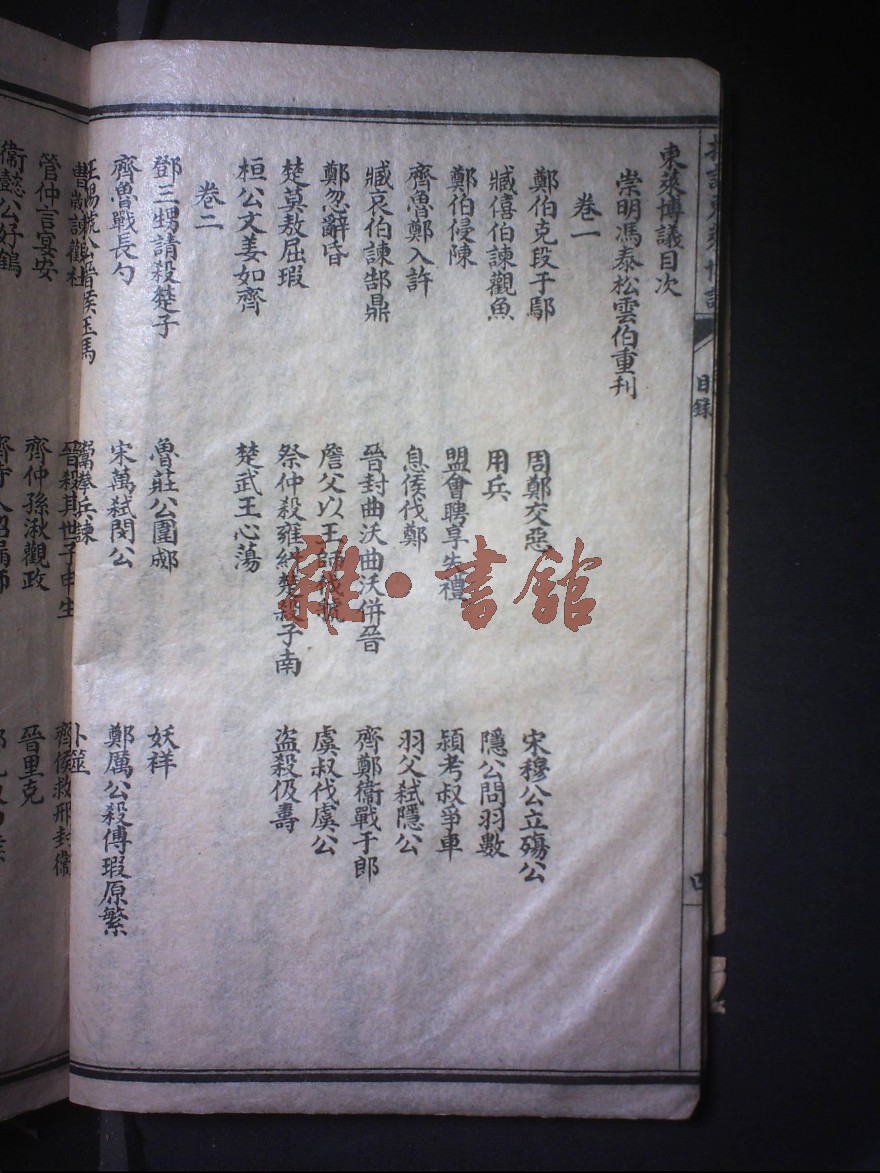 東萊博議目次
崇明馮泰松雲伯重刋
卷一
鄭伯克段于鄢 周鄭交惡 宋穆公立殤公
臧僖伯諫觀魚 用兵 隱公問羽數
鄭伯侵陳 盟會聘享失禮 潁考叔爭車
齊魯鄭入許 息侯伐鄭 羽父弒隱公
臧哀伯諫郜鼎 晉封曲沃曲沃併晉 齊鄭衞戰于郎
鄭忽辭昏 詹父以王師伐虢 虞叔伐虞公
楚莫敖屈瑕 祭仲殺雍糾楚殺子南 盜殺伋壽
桓公文姜如齊 楚武王心蕩
卷二
鄧三甥請殺楚子 魯莊公圍郕 妖祥
齊魯戰長勺 宋萬弒閔公 鄭厲公殺傅瑕原繁
王賜虢公晉侯玉馬 鬻拳兵諫 卜筮
曹劌諫觀社 晉殺其世子申生 齊侯救邢封衞
管仲言宴安 齊仲孫湫觀政 晉里克
衞懿公好鶴
目錄
雜·書館